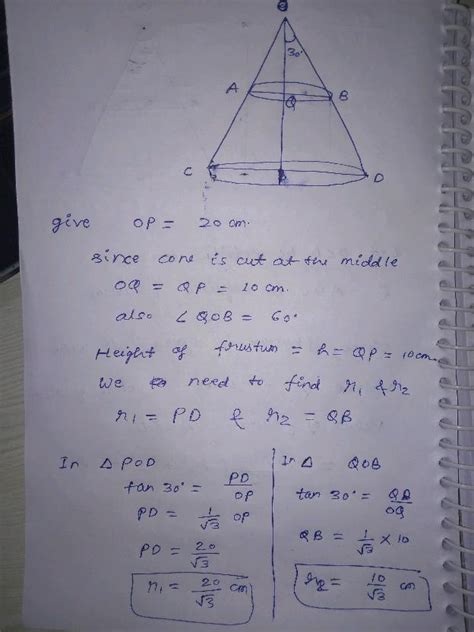 O
30°
A
Q
B
C
D
give OP = 20 cm.
since cone is cut at the middle
OQ = QP = 10 cm.
also ∠ QOB = 60°
Height of frustum = h = QP = 10 cm.
We need to find r1 & r2
r1 = PD & r2 = QB
In △ POD
tan 30° = PD/OP
PD = 1/√3 OP
PD = 20/√3
r1 = 20/√3 cm
In △ QOB
tan 30° = QB/OQ
QB = 1/√3 × 10
r2 = 10/√3 cm